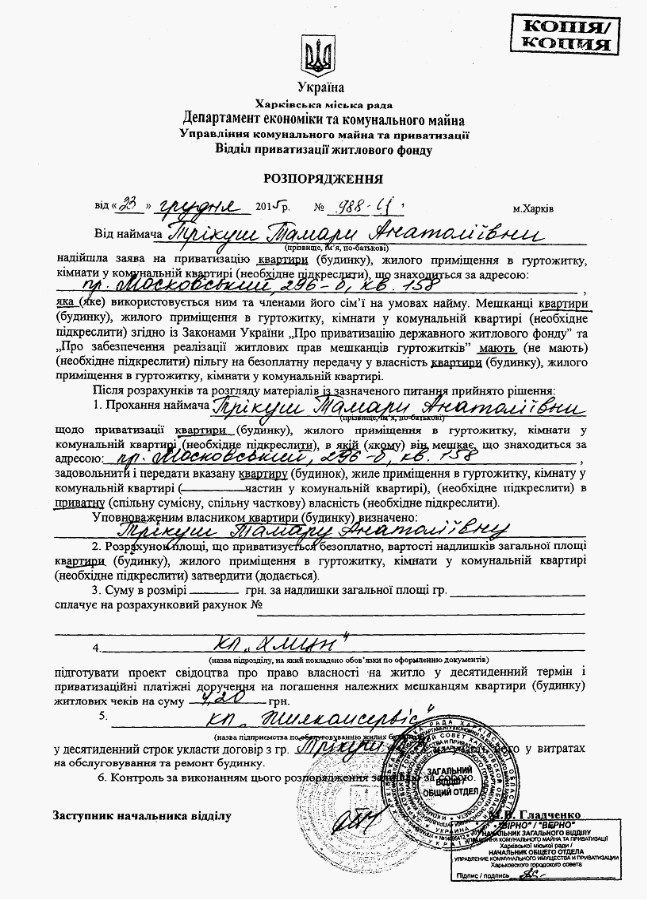 КОПІЯ/
КОПИЯ
Україна
Харківська міська рада
Департамент економіки та комунального майна
Управління комунального майна та приватизації
Відділ приватизації житлового фонду
РОЗПОРЯДЖЕННЯ
від « 23 » грудня 2015р. № 988-Ц м.Харків
Від наймача Трікуш Тамари Анатоліївни
(прізвище, ім'я, по-батькові)
надійшла заява на приватизацію квартири (будинку), жилого приміщення в гуртожитку,
кімнати у комунальній квартирі (необхідне підкреслити), що знаходиться за адресою:
пр. Московський, 296-б, кв. 158
яка (яке) використовується ним та членами його сім'ї на умовах найму. Мешканці квартири
(будинку), жилого приміщення в гуртожитку, кімнати у комунальній квартирі (необхідне
підкреслити) згідно із Законами України „Про приватизацію державного житлового фонду" та
„Про забезпечення реалізації житлових прав мешканців гуртожитків" мають (не мають)
(необхідне підкреслити) пільгу на безоплатну передачу у власність квартири (будинку), жилого
приміщення в гуртожитку, кімнати у комунальній квартирі.
Після розрахунків та розгляду матеріалів із зазначеного питання прийнято рішення:
1. Прохання наймача Трікуш Тамари Анатоліївни
(прізвище, ім'я, по-батькові)
щодо приватизації квартири (будинку), жилого приміщення в гуртожитку, кімнати у
комунальній квартирі (необхідне підкреслити), в якій (якому) він мешкає, що знаходиться за
адресою: пр. Московський, 296-б, кв. 158 ,
задовольнити і передати вказану квартиру (будинок), жиле приміщення в гуртожитку, кімнату у
комунальній квартирі (________частин у комунальній квартирі), (необхідне підкреслити) в
приватну (спільну сумісну, спільну часткову) власність (необхідне підкреслити).
Уповноваженим власником квартири (будинку) визначено:
Трікуш Тамару Анатоліївну
2. Розрахунок площі, що приватизується безоплатно, вартості надлишків загальної площі
квартири (будинку), жилого приміщення в гуртожитку, кімнати у комунальній квартирі
(необхідне підкреслити) затвердити (додається).
3. Суму в розмірі ________ грн. за надлишки загальної площі гр. ________
сплачує на розрахунковий рахунок №
4. кп „Хмцн"
(назва підрозділу, на який покладено обов'язки по оформленню документів)
підготувати проект свідоцтва про право власності на житло у десятиденний термін і
приватизаційні платіжні доручення на погашення належних мешканцям квартири (будинку)
житлових чеків на суму 4,20 грн.
5. кп „Жилкомсервіс"
(назва підприємства по обслуговуванню жилих будинків)
у десятиденний строк укласти договір з гр. Трікуш його у витратах
на обслуговування та ремонт будинку.
6. Контроль за виконанням цього розпорядження залишаю за собою.
Заступник начальника відділу М.В. Гладченко
ЗАГАЛЬНИЙ
ВІДДІЛ
ОБЩИЙ ОТДЕЛ
"ВІРНО" / "ВЕРНО"
НАЧАЛЬНИК ЗАГАЛЬНОГО ВІДДІЛУ
УПРАВЛІННЯ КОМУНАЛЬНОГО МАЙНА ТА ПРИВАТИЗАЦІЇ
Харківської міської ради /
НАЧАЛЬНИК ОБЩЕГО ОТДЕЛА
УПРАВЛЕНИЕ КОММУНАЛЬНОГО ИМУЩЕСТВА И ПРИВАТИЗАЦИИ
Харьковского городского совета
Підпис / подпись